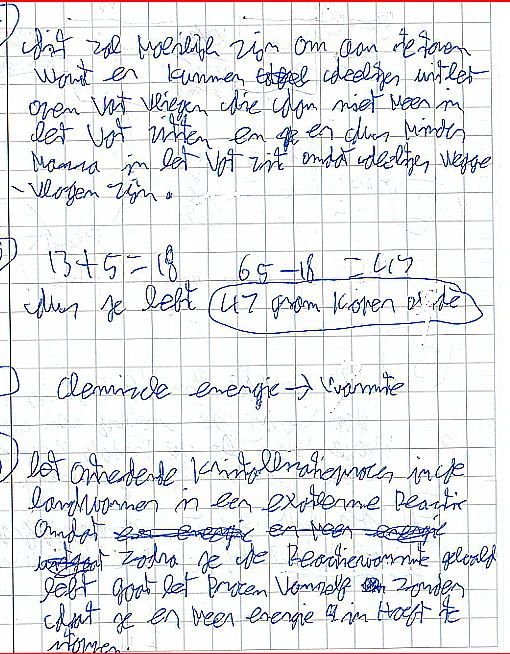 dit zal moeilijk zijn om aan te tonen
want er kunnen deeltjes uit het
open vat vliegen die dan niet meer in
het vat zitten en je er dus minder
massa in het vat zit omdat deeltjes wegge
-vlogen zijn.
13+5=18 65-18 =47
dus je hebt 47 gram koper oxide
Chemische energie → warmte
het ontstedende kristallisatieproces in de
handwarmer is een exotherme reactie
omdat en energie er meer energie
zodra je de reactiewarmte gehaald
hebt gaat het proces vanzelf zonder
dat je er meer energie in hoeft te
stoppen.